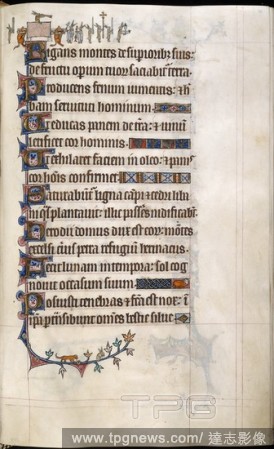 Rigans montes de superioribus suis:
de fructu operum tuorum saciabitur terra.
Producens fenum iumentis: & her
bam seruituti hominum.
Ut educas panem de terra: & uinum
letificet cor hominis.
Ut exhilaret faciem in oleo: & panis
cor hominis confirmet.
Saturabuntur ligna campi & cedri liba
ni quas plantauit: illic passeres nidificabunt.
Herodii domus dux est eorum: montes
excelsi ceruis petra refugium herinaciis.
Fecit lunam in tempora: sol cog
nouit occasum suum.
Posuisti tenebras & facta est nox: in
ipsa pertransibunt omnes bestie silue.
TPG
www.tpgnews.com / 達志影像